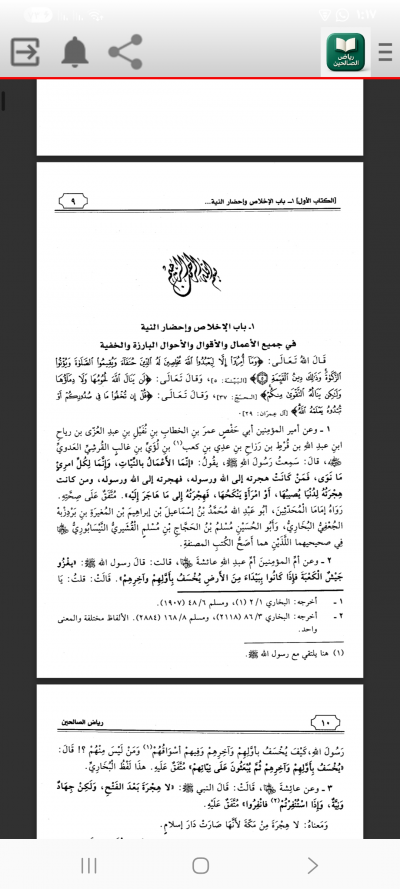 رياض
الصالحين
[الكتاب الأول] ١- باب الإخلاص وإحضار النية...
٩
بسم الله الرحمن الرحيم
١- باب الإخلاص وإحضار النية
في جميع الأعمال والأقوال والأحوال البارزة والخفية
قَالَ اللهُ تَعَالَى: ﴿وَمَا أُمِرُوا إِلَّا لِيَعْبُدُوا اللَّهَ مُخْلِصِينَ لَهُ الدِّينَ حُنَفَاءَ وَيُقِيمُوا الصَّلَاةَ وَيُؤْتُوا
الزَّكَاةَ وَذَلِكَ دِينُ الْقَيِّمَةِ﴾ [البَيّنَة: ٥]، وَقَالَ تَعَالَى: ﴿لَن يَنَالَ اللَّهَ لُحُومُهَا وَلَا دِمَاؤُهَا
وَلَكِن يَنَالُهُ التَّقْوَى مِنكُمْ﴾ [الحَجّ: ٣٧]، وَقَالَ تَعَالَى: ﴿قُلْ إِن تُخْفُوا مَا فِي صُدُورِكُمْ أَوْ
تُبْدُوهُ يَعْلَمْهُ اللَّهُ﴾ [آل عِمرَان: ٢٩].
١ - وعن أمير المؤمِنين أبي حَفْصٍ عمرَ بنِ الخطابِ بنِ نُفَيْلِ بنِ عبدِ العُزّى بنِ رياحِ
ابنِ عبدِ اللهِ بن قُرْطِ بن رَزاحِ بنِ عدِي بنِ كعب(١) بنِ لُؤَيِّ بنِ غالبٍ القُرشِيِّ العَدويِّ
ﷺ، قالَ: سَمِعتُ رَسُولَ اللهِ ﷺ، يقُولُ: «إنّمَا الأَعْمَالُ بالنِّيّاتِ، وَإِنّمَا لِكُلِّ امرِىءٍ
مَا نَوَى، فَمَنْ كَانَتْ هجرته إلى الله ورسوله، فهجرته إلى الله ورسوله، ومن كانت
هِجْرَتُهُ لِدُنْيَا يُصيبُهَا، أَوْ امْرَأَةٍ يَنْكَحُهَا، فَهِجْرَتُهُ إلى مَا هَاجَرَ إِلَيْه». مُتَّفَقٌ عَلَى صِحَّتِهِ.
رَوَاهُ إمَامَا الْمُحَدّثِينَ، أبُو عَبْدِ الله مُحَمَّدُ بْنُ إسْمَاعيلَ بْن إبراهِيمَ بْن المُغيرَةِ بنِ بَرْدِزْبهْ
الجُعْفِيُّ البُخَارِيُّ، وَأَبُو الحُسَيْنِ مُسْلمُ بْنُ الحَجَّاجِ بْنِ مُسْلمٍ الْقُشَيريُّ النَّيْسَابُورِيُّ
في صحيحيهما اللَّذَيْنِ هما أَصَحُّ الكُتبِ المصنفةِ.
٢ - وعن أمِّ المؤمِنينَ أمِّ عبدِ اللهِ عائشةَ، قالت: قالَ رسول الله ﷺ: «يغْزُو
جَيْشٌ الْكَعْبَةَ فإِذَا كَانُوا بِبَيْدَاءَ مِنَ الأَرضِ يُخْسَفُ بِأَوَّلِهِمْ وآخِرِهِمْ». قَالَتْ: قلتُ: يَا
١ - أخرجه: البخاري ٢/١ (١)، ومسلم ٤٨/٦ (١٩٠٧).
٢ - أخرجه: البخاري ٨٦/٣ (٢١١٨)، ومسلم ١٦٨/٨ (٢٨٨٤). الألفاظ مختلفة والمعنى
واحد.
(١) هنا يلتقي مع رسول الله ﷺ.
١٠
رياض الصالحين
رَسُولَ اللهِ، كَيْفَ يُخْسَفُ بأوَّلِهِمْ وَآخِرِهِمْ وَفِيهمْ أسْوَاقُهُمْ(١) وَمَنْ لَيْسَ مِنْهُمْ؟! قَالَ:
«يُخْسَفُ بِأَوَّلِهِمْ وَآخِرِهِمْ ثُمَّ يُبْعَثُونَ عَلى نِيّاتِهمْ» مُتَّفَقٌ عَلَيْهِ. هذَا لَفْظُ الْبُخَارِيِّ.
٣ - وعن عائِشةَ، قَالَتْ: قَالَ النبي ﷺ: «لا هِجْرَةَ بَعْدَ الفَتْحِ، وَلَكِنْ جِهَادٌ
وَنِيَّةٌ، وَإِذَا اسْتُنْفِرْتُمْ(٢) فانْفِرُوا» مُتَّفَقٌ عَلَيْهِ.
وَمَعناهُ: لا هِجْرَةَ مِنْ مَكّةَ لأَنَّهَا صَارَتْ دَارَ إسلاَمٍ.